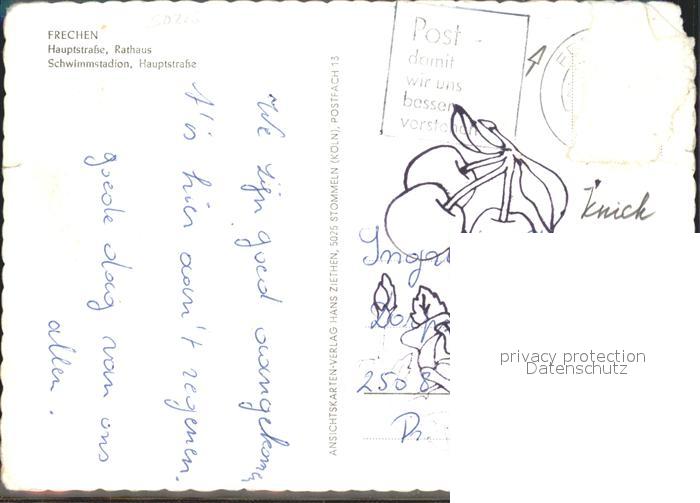 FRECHEN
Hauptstraße, Rathaus
Schwimmstadion, Hauptstraße
We zijn goed aangekomen
t'is hier aan't regenen.
goede dag van ons
allen.
ANSICHTSKARTEN-VERLAG HANS ZIETHEN, 5025 STOMMELN (KÖLN), POSTFACH 13
Post -
damit
wir uns
besser
verstehen
Knick
Ingr
2508
privacy protection
Datenschutz